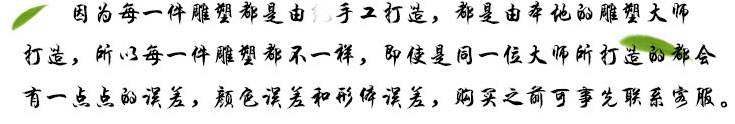 因为每一件雕塑都是由纯手工打造，都是由本地的雕塑大师
打造，所以每一件雕塑都不一样，即使是同一位大师所打造的都会
有一点点的误差，颜色误差和形体误差，购买之前可事先联系客服。